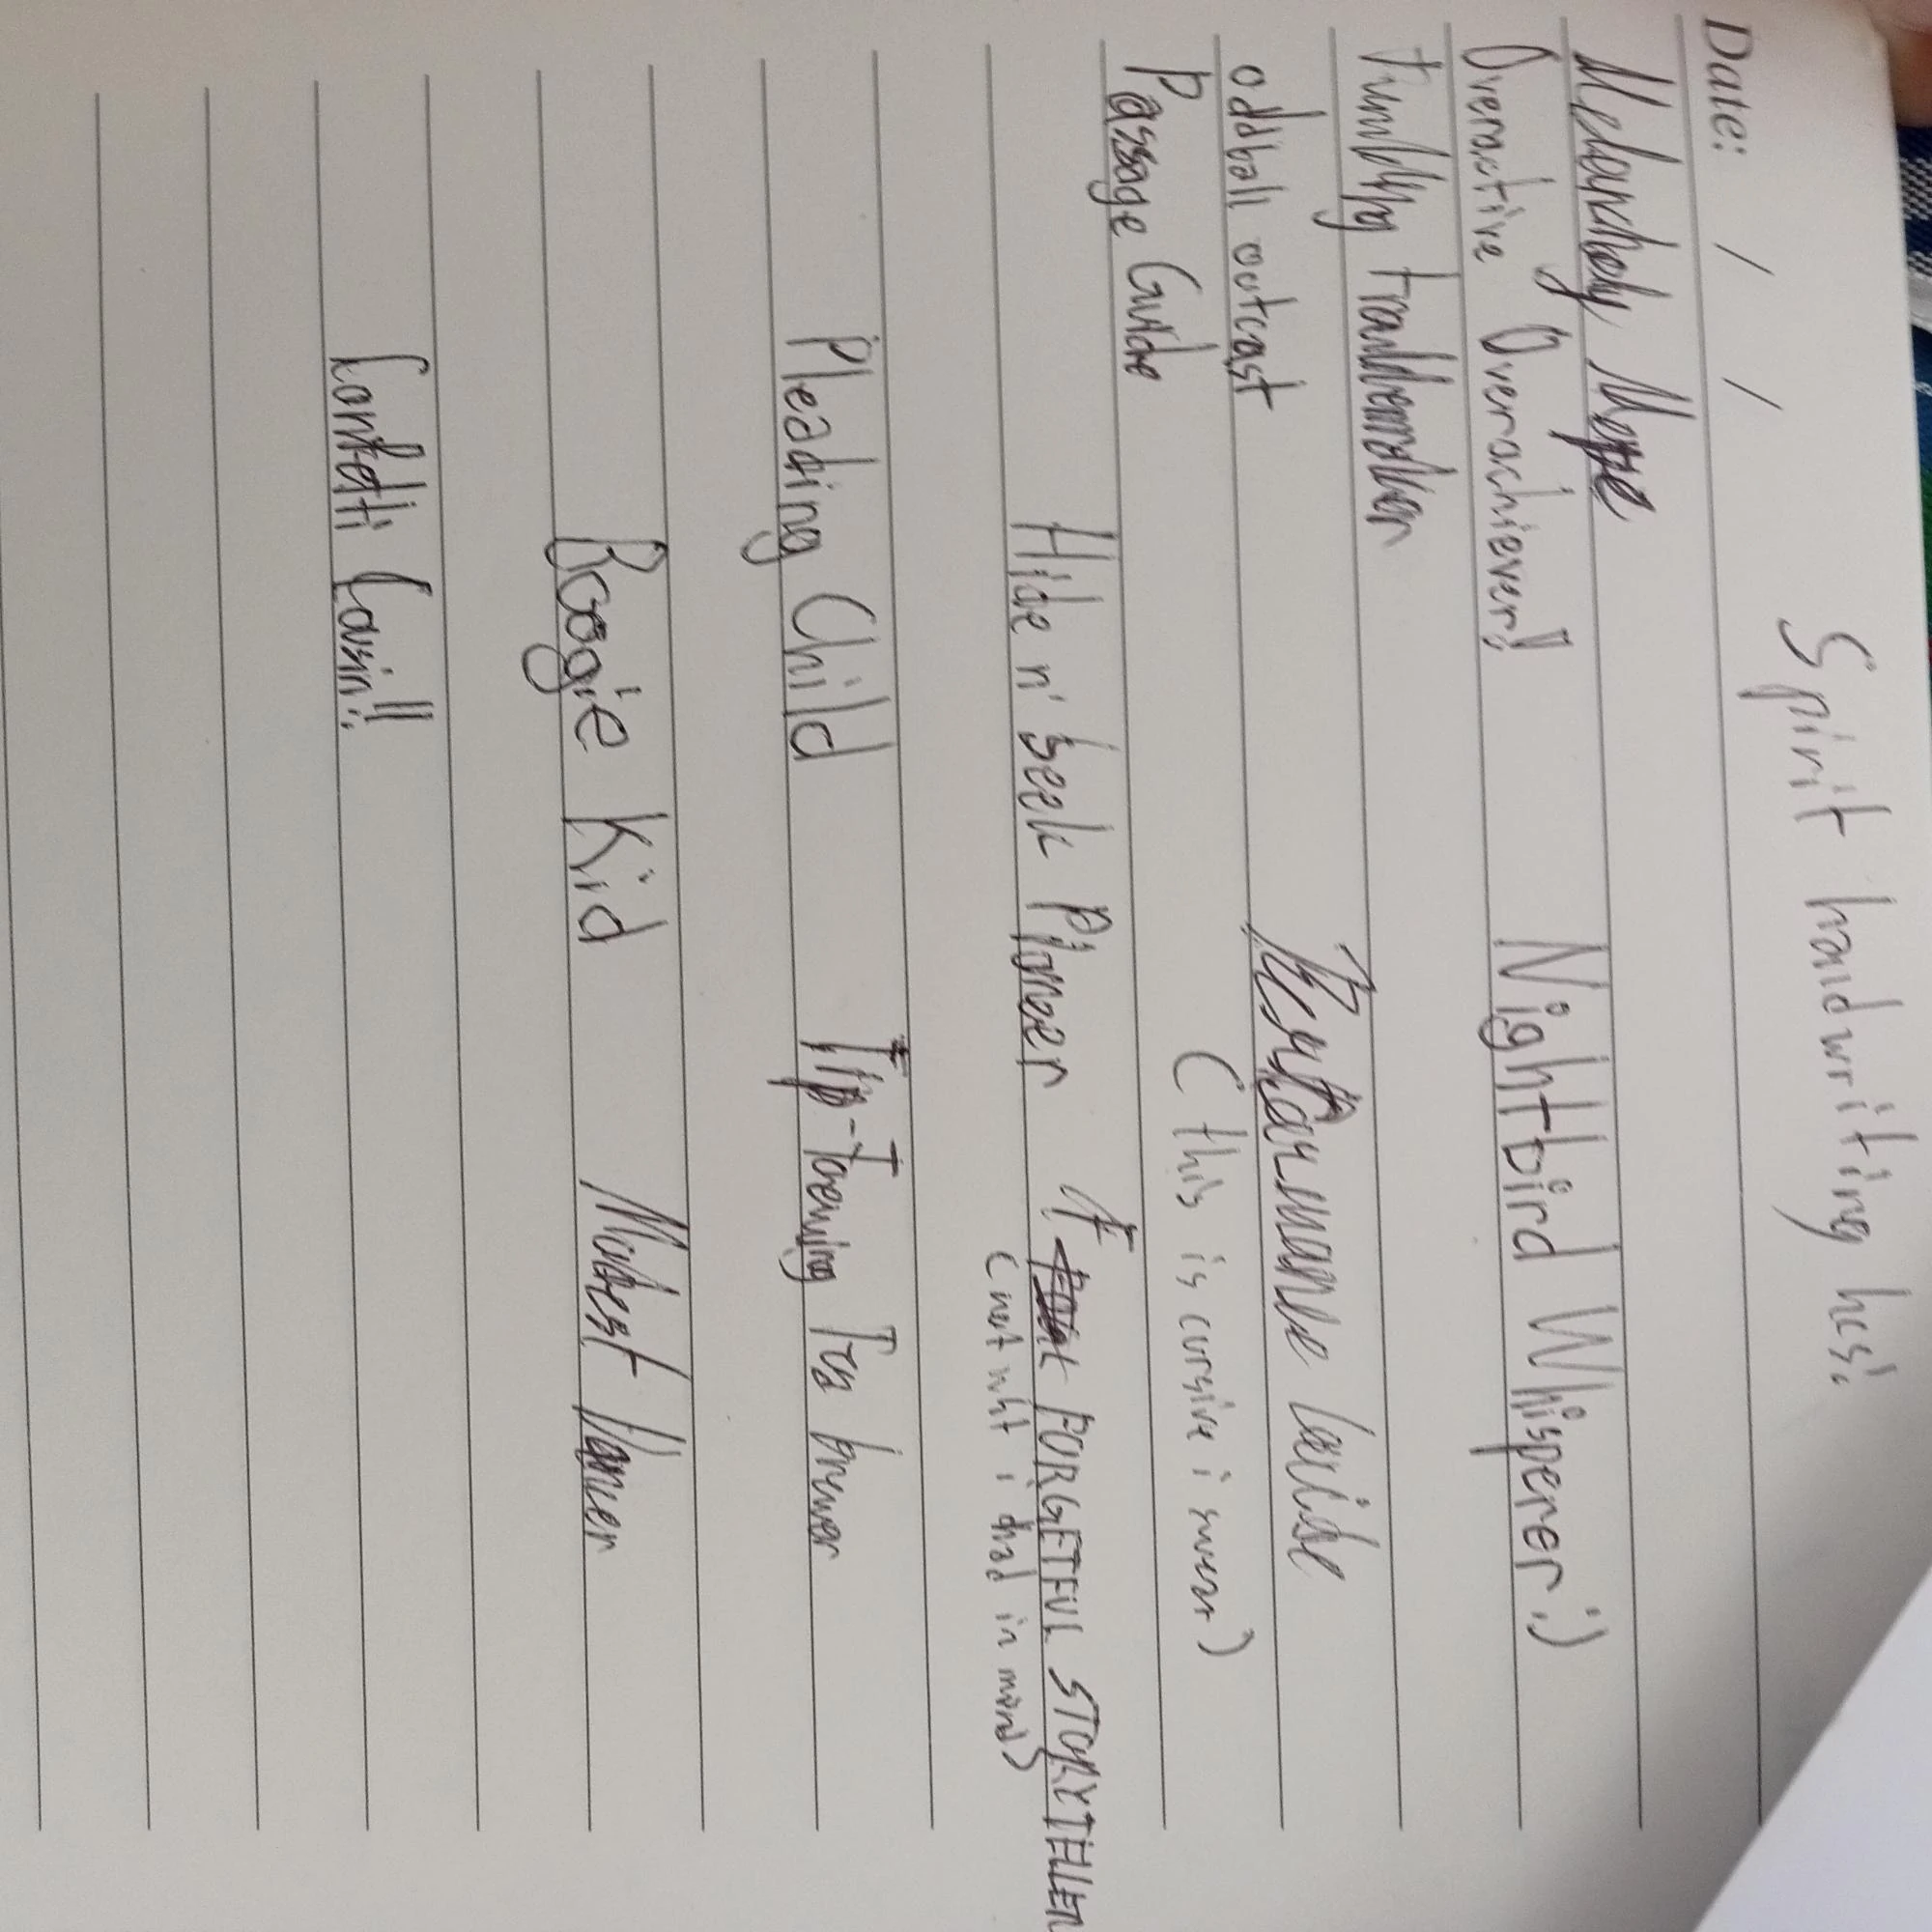 Spirit handwriting hcs:
Date: / /
Melancholy Mope
Overactive Overachiever!!
Nightbird Whisperer :)
Tumbling Troublemaker
oddball outcast
Passage Guide
( this is cursive i swear)
Hide n' Seek Pioneer
FORGETFUL STORYTELLER
( not wht i had in mind)
Pleading Child
Tip-Toeing Tea brewer
Boogie Kid
Modest Dancer
Confetti Cousin!!